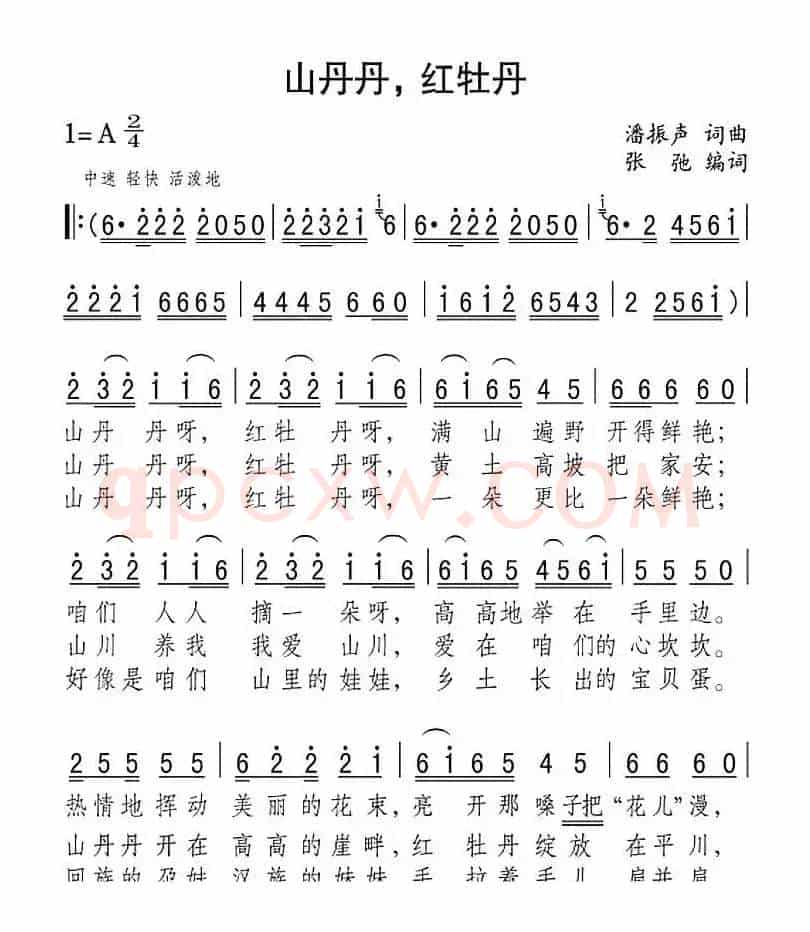 山丹丹，红牡丹
1=A 2/4
潘振声 词曲
张 弛 编词
中速 轻快 活泼地
‖:(6· 2̇2̇2̇ 2̇050 | 2̇2̇3̇2̇1̇ 6 | 6· 2̇2̇2̇ 2̇050 | 6· 2̇ 4561̇ |
2̇2̇2̇1̇ 6665 | 4445 6 60 | 1̇61̇2̇ 6543 | 2 2561̇) |
2̇ 3̇2̇ 1̇ 1̇6 | 2̇ 3̇2̇ 1̇ 1̇6 | 61̇65 4 5 | 6 6 6 60 |
山丹 丹呀， 红牡 丹呀， 满 山 遍野 开得鲜艳；
山丹 丹呀， 红牡 丹呀， 黄 土 高坡 把 家安；
山丹 丹呀， 红牡 丹呀， 一 朵 更比 一朵鲜艳；
qpcxw.COM
2̇ 3̇2̇ 1̇ 1̇6 | 2̇ 3̇2̇ 1̇ 1̇6 | 6165 4561̇ | 5 5 5 50 |
咱们 人人 摘一 朵呀， 高 高地举 在 手里边。
山川 养我 我爱 山川， 爱在 咱们的心坎坎。
好像是咱们 山里的娃娃， 乡土 长 出的宝贝蛋。
2̇ 5 5 5 5 | 6 2̇ 2̇ 2̇1̇ | 61̇65 45 | 6 6 6 5 |
热情地挥动 美丽的花束，亮 开那嗓子把“花儿”漫，
山丹丹开在 高高的崖畔，红 牡丹绽放 在平川，
回族的尕妹 汉族的妹妹 手 拉着手儿 肩并肩